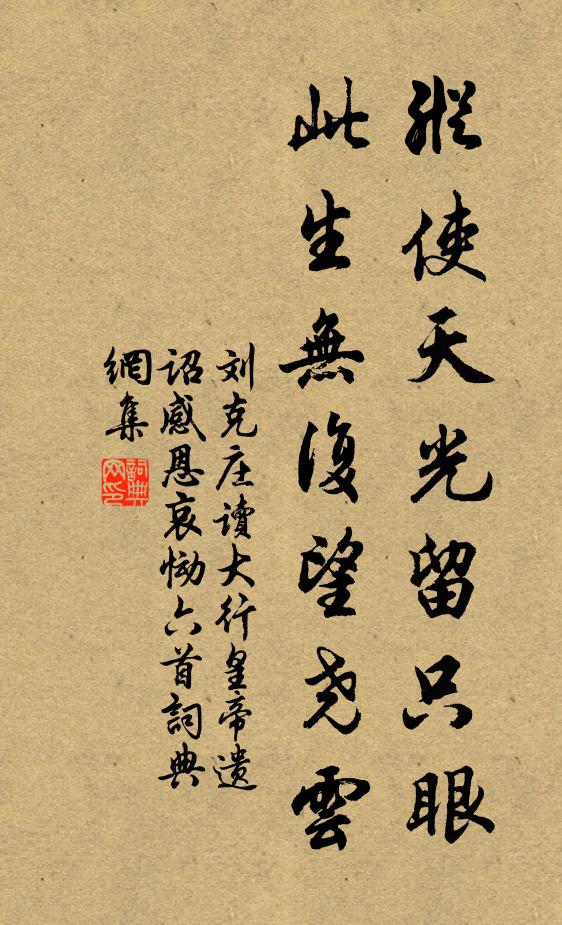 縱使天光留只眼
此生無復望尧雲
刘克庄讀大行皇帝遗
詔感恩哀慟六首詞典
網集
詞典
网印